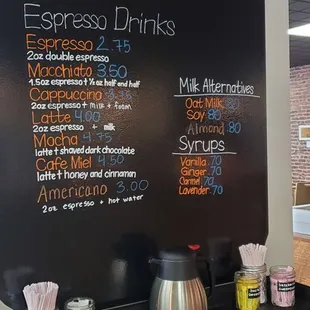 Espresso Drinks
Espresso 2.75
2oz double espresso
Macchiato 3.50
1.5oz espresso + ½oz half and half
Cappuccino
2oz espresso + milk + foam
Latte 4.00
2oz espresso + milk
Mocha 4.75
latte + shaved dark chocolate
Cafe Miel 4.50
latte + honey and cinnamon
Americano 3.00
2oz espresso + hot water
Milk Alternatives
Oat Milk .80
Soy .80
Almond .80
Syrups
Vanilla .70
Ginger .70
Carmel .70
Lavender .70